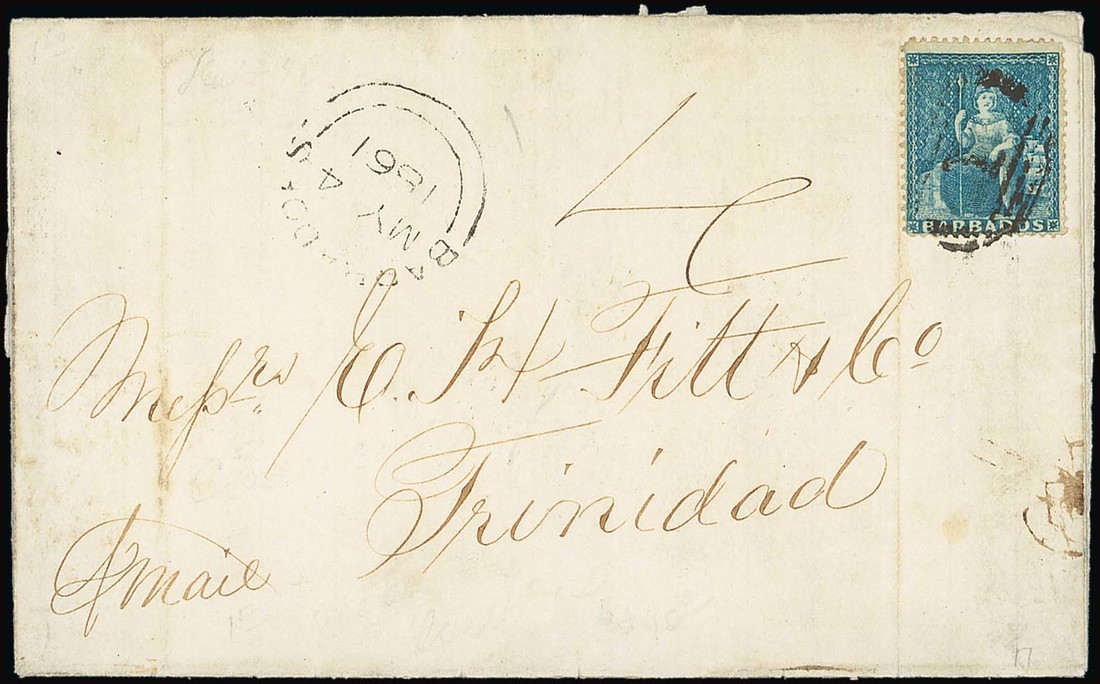 BARBADOS
BARBADOS
A
MY 4
1861
Messrs E. H. Fitt & Co
Trinidad
p mail
17